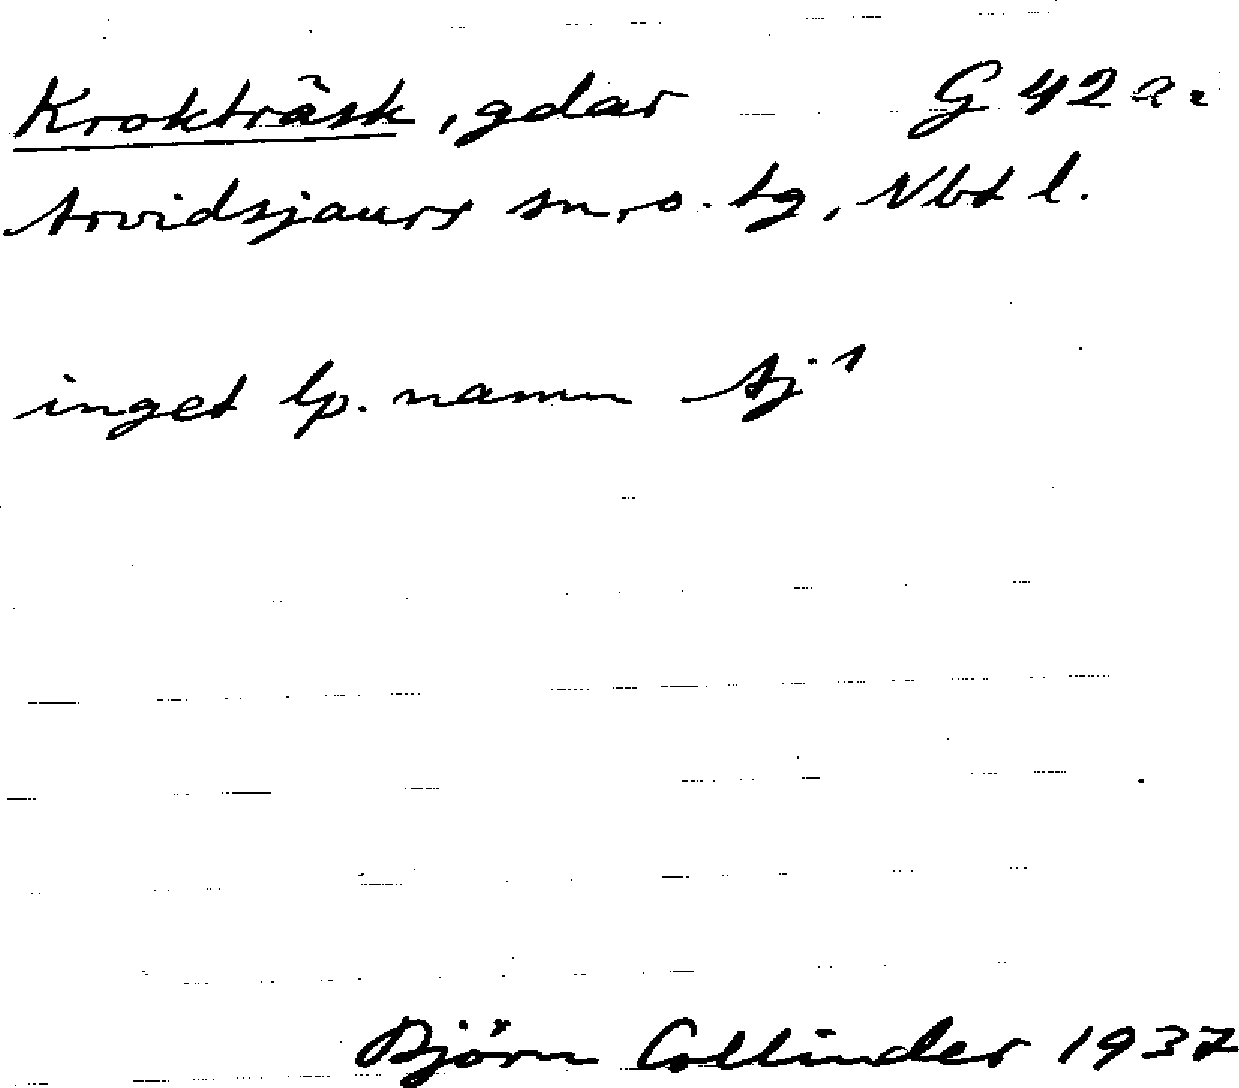 Krokträsk, gdar G 42 a.
Arvidsjaurs sn. o. tg, Vbt l.
inget lp. namn Aj 1
Björn Collinder 1937